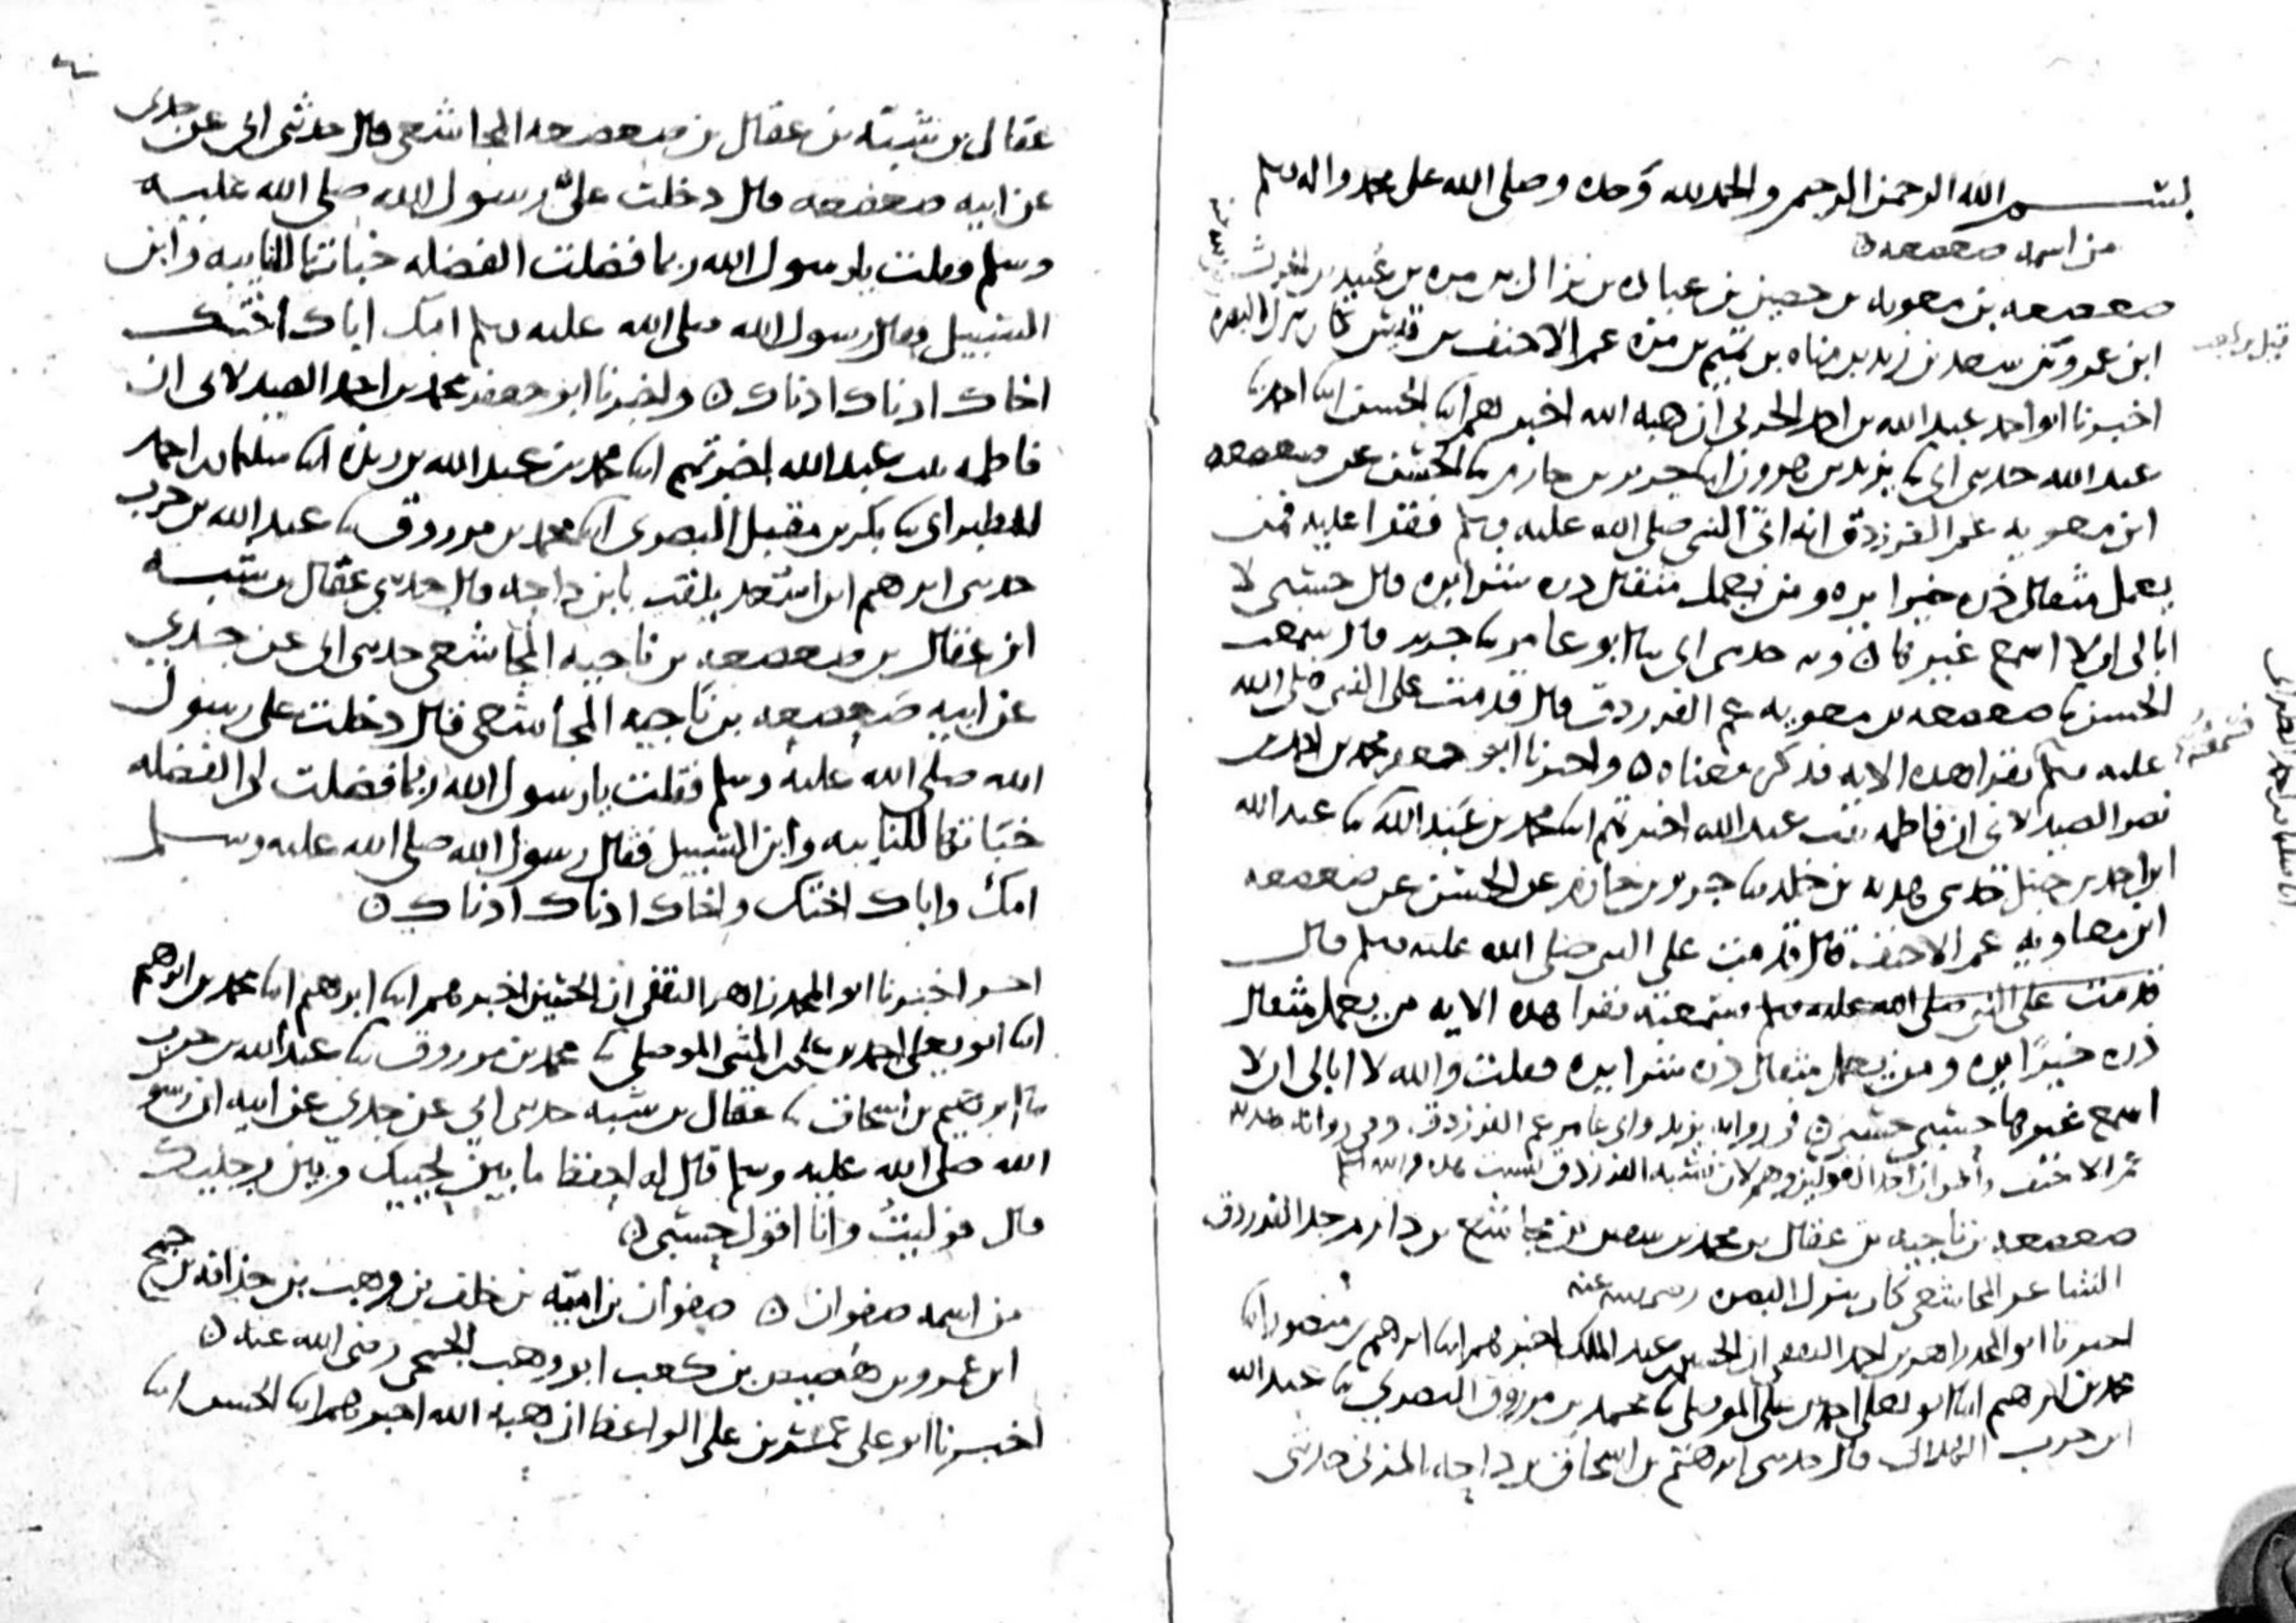 بسم الله الرحمن الرحيم والحمد لله وحده وصلى الله على محمد واله وسلم
من اسمه صعصعة
صعصعه بن معويه بن حصين بن عباده بن نزال بن مره بن عبيد بن
ابن عمرو بن سعد بن زيد بن مناه بن تميم بن مره عم الاحنف بن قيس كان ينزل البصره
اخبرنا ابو احمد عبد الله بن احمد الحربي ان هبه الله اخبرهم ابنا الحسن ابنا احمد ثنا
عبد الله حدثني ابي ثنا يزيد بن هرون ابنا جرير بن حازم ثنا الحسن عن صعصعه
ابن معويه عم الفرزدق انه اتى النبي صلى الله عليه وسلم فقرا عليه فمن
يعمل مثقال ذره خيرا يره ومن يعمل مثقال ذره شرا يره قال حسبي لا
ابالي ان لا اسمع غيرها ٥ وبه حدثني ابي ثنا ابو عامر ثنا جرير قال سمعت
الحسن ثنا صعصعه بن معويه عم الفرزدق قال قدمت على النبي صلى الله
عليه وسلم يقرا هذه الايه فذكر معناه ٥ واخبرنا ابو جعفر محمد بن احمد بن
نصر الصيدلاني ان فاطمه بنت عبد الله اخبرتهم ابنا محمد بن عبد الله ثنا عبد الله
ابن احمد بن حنبل حدثني هدبه بن خلد ثنا جرير بن حازم عن الحسن عن صعصعه
ابن معاويه عم الاحنف قال قدمت على النبي صلى الله عليه وسلم قال
قدمت على النبي صلى الله عليه وسلم فسمعته يقرا هذه الايه من يعمل مثقال
ذره خيرا يره ومن يعمل مثقال ذره شرا يره فقلت والله لا ابالي ان لا
اسمع غيرها حسبي حسبي ٥ في روايه يزيد وابي عامر عم الفرزدق وفي روايه هدبه
عم الاحنف لان نسبه الفرزدق ليست هذه والله اعلم
صعصعه بن ناجيه بن عقال بن محمد بن سفين بن مجاشع بن دارم جد الفرزدق
الشاعر المجاشعي كان ينزل البصره رضي الله عنه
اخبرنا ابو المجد زاهر بن احمد الثقفي ان الحسين بن عبد الملك اخبرهم ابنا ابرهيم بن منصور ابنا
محمد بن ابرهيم ابنا ابو يعلى احمد بن علي الموصلي ثنا محمد بن مرزوق البصري ثنا عبد الله
ابن حرب قال حدثني ابرهيم بن اسحاق بن داحه المزني حدثني
عقال بن شبه بن عقال بن صعصعه المجاشعي قال حدثني ابي عن جدي
عن ابيه صعصعه قال دخلت على رسول الله صلى الله عليه
وسلم فقلت يا رسول الله ربما فضلت الفضله خباتها للنايبه وابن
السبيل فقال رسول الله صلى الله عليه وسلم امك اباك اختك
اخاك ادناك ادناك ٥ واخبرنا ابو جعفر محمد بن احمد الصيدلاني ان
فاطمه بنت عبد الله اخبرتهم ابنا محمد بن عبد الله بن ريذه ابنا سليمان بن احمد
الطبراني ثنا بكر بن مقبل البصري ثنا محمد بن مرزوق ثنا عبد الله بن حرب
حدثني ابرهيم ابن اسحق يلقب بابن داحه قال حدثني عقال بن شبه
ابن عقال بن صعصعه بن ناجيه المجاشعي حدثني ابي عن جدي
عن ابيه صعصعه بن ناجيه المجاشعي قال دخلت على رسول
الله صلى الله عليه وسلم فقلت يا رسول الله ربما فضلت لي الفضله
خباتها للنايبه وابن السبيل فقال رسول الله صلى الله عليه وسلم
امك واباك اختك واخاك ادناك ادناك ٥
اخر اخبرنا ابو المجد زاهر الثقفي ان الحسين اخبرهم ابنا ابرهيم ابنا محمد بن ابرهيم
ابنا ابو يعلى احمد بن علي بن المثنى الموصلي ثنا محمد بن مرزوق ثنا عبد الله بن حرب
ثنا ابرهيم بن اسحاق ثنا عقال بن شبه حدثني ابي عن جدي عن ابيه ان رسول
الله صلى الله عليه وسلم قال له احفظ ما بين لحييك وبين رجليك
قال فوليت وانا اقول حسبي ٥
من اسمه صفوان ٥ صفوان بن اميه بن خلف بن وهب بن حذافه بن جمح
ابن عمرو بن هصيص بن كعب ابو وهب الجمحي رضي الله عنه ٥
اخبرنا ابو علي بن علي الواعظ ان هبه الله اخبرهم ابنا الحسن ابنا